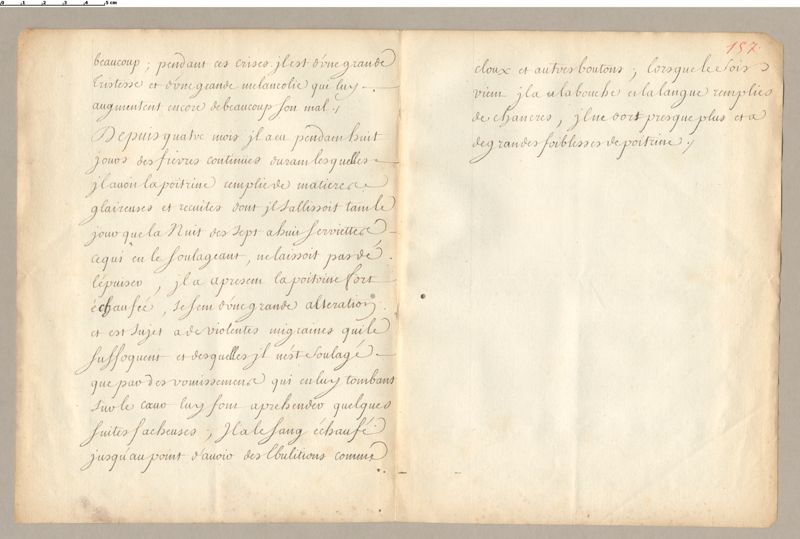 0 1 2 3 4 5 cm
beaucoup ; pendant ces crises jl est d'vne grande
tristesse et d'vne grande melancolie qui luy
augmentent encore de beaucoup son mal ./
Depuis quatre mois jl a eu pendant huit
jours des fievres continües durant lesquelles
jl auoit la poitrine remplie de matieres
glaireuses et recuites dont jl sallissoit tant le
jour que la Nuit des sept a huit serviettes
ce qui en le soulageant, ne laissoit pas de
l'épuiser, jl a apresent la poitrine fort
échaufée, se sent d'vne grande alteration
et est sujet a de violentes migraines qui le
suffoquent et desquelles jl n'est soulagé
que par des vomissemens qui en luy tombant
sur le cœur luy font aprehender quelques
suites facheuses ; Jl a le sang échaufé
jusqu'au point d'auoir des Ebulitions comme
157.
cloux et autres boutons ; lorsque le soir
vient jl a la bouche et la langue remplies
de chancres, jl ne dort presque plus et a
de grandes foiblesses de poitrine ./